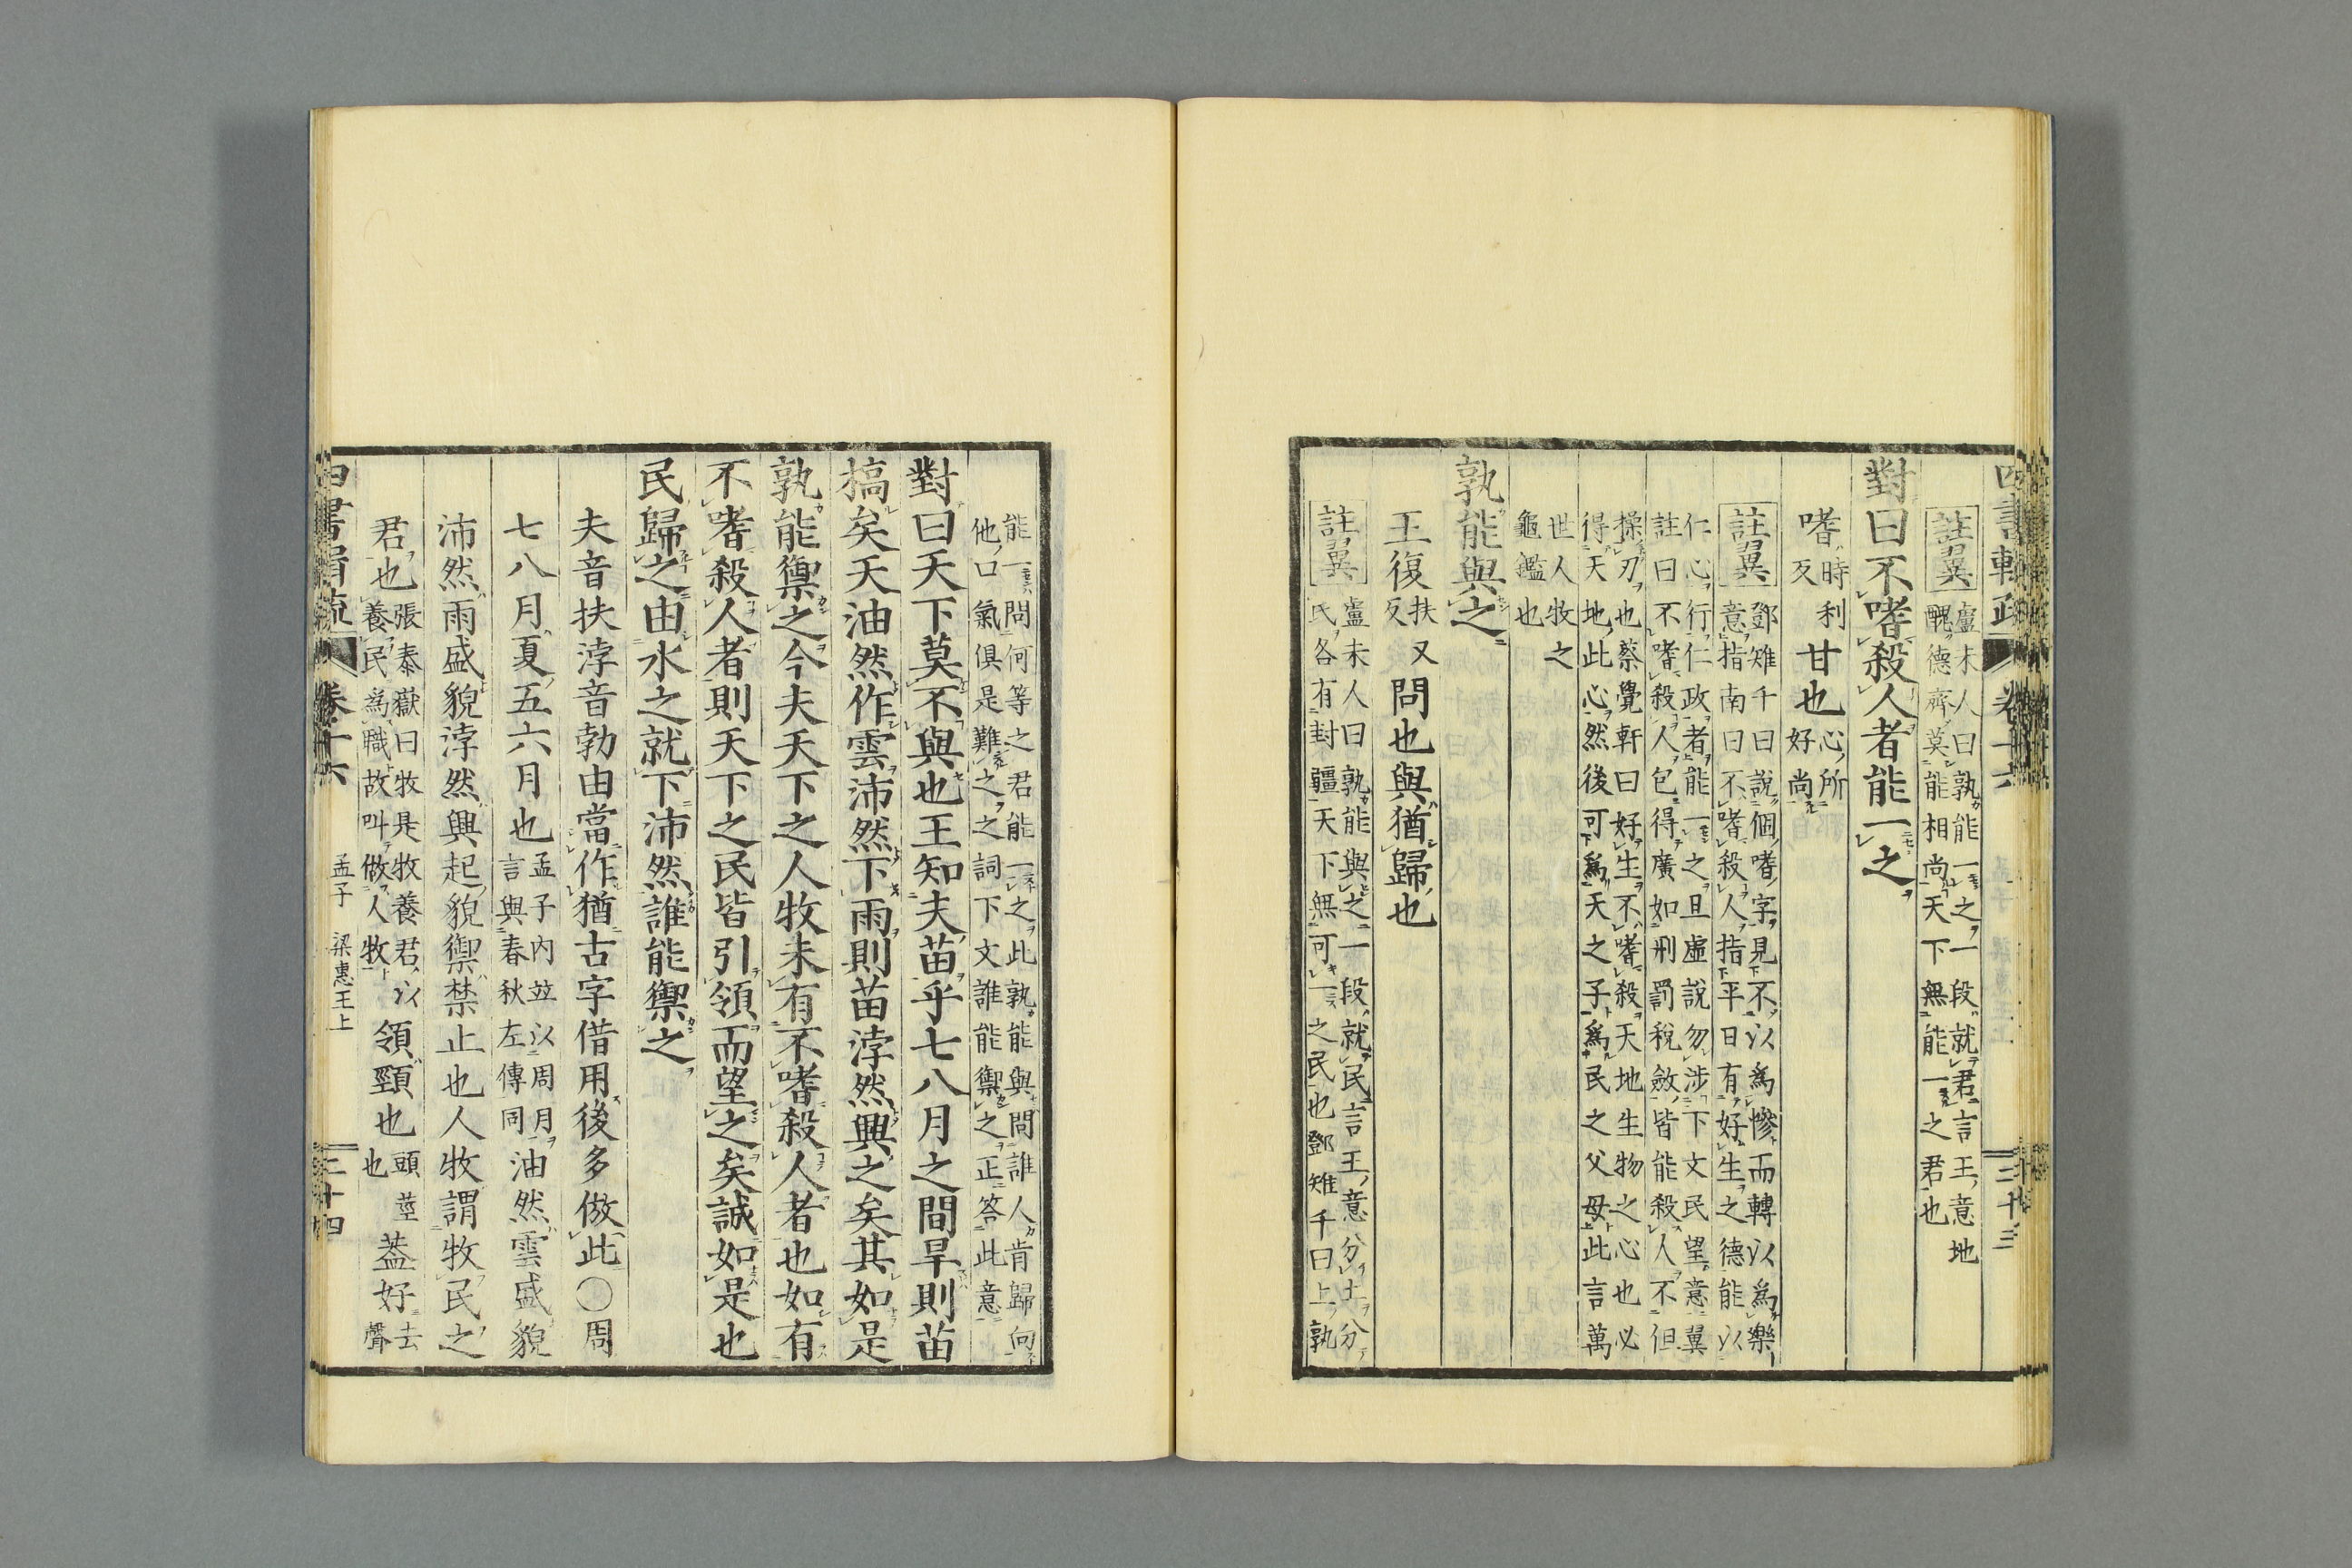 四書輯疏 卷十六 三十三
註翼 盧未人曰孰能一之一段就君言王意地
醜德齊莫能相尚天下無能一之君也
對曰不嗜殺人者能一之
嗜時利反甘也心所好尚
註翼 鄧雉千曰說個嗜字見不以為慘而轉以為樂
意指南曰不嗜殺人指平日有好生之德能以
仁心行仁政者能一之且虛說勿涉下文民望意翼
註曰不嗜殺人包得廣如刑罰稅斂皆能殺人不但
操刃也蔡覺軒曰好生不嗜殺天地生物之心也必
得天地此心然後可爲天之子爲民之父母此言萬
世人牧之
龜鑑也
孰能與之
王復扶又反問也與猶歸也
註翼 盧未人曰孰能與之一段就民言王意分土分
民各有封疆天下無可一之民也鄧雉千曰上孰
能一問何等之君能一之此孰能與問誰人肯歸向
他口氣俱是難之之詞下文誰能禦之正答此意
對曰天下莫不與也王知夫苗乎七八月之間旱則苗
槁矣天油然作雲沛然下雨則苗浡然興之矣其如是
孰能禦之今夫天下之人牧未有不嗜殺人者也如有
不嗜殺人者則天下之民皆引領而望之矣誠如是也
民歸之由水之就下沛然誰能禦之
夫音扶浡音勃由當作猶古字借用後多倣此〇周
七八月夏五六月也孟子內竝以周月言與春秋左傳同油然雲盛貌
沛然雨盛貌浡然興起貌禦禁止也人牧謂牧民之
君也張泰嶽曰牧是牧養君以養民為職故叫做人牧領頸也頭莖也蓋好去聲
四書輯疏 卷十六 孟子 梁惠王上 三十四